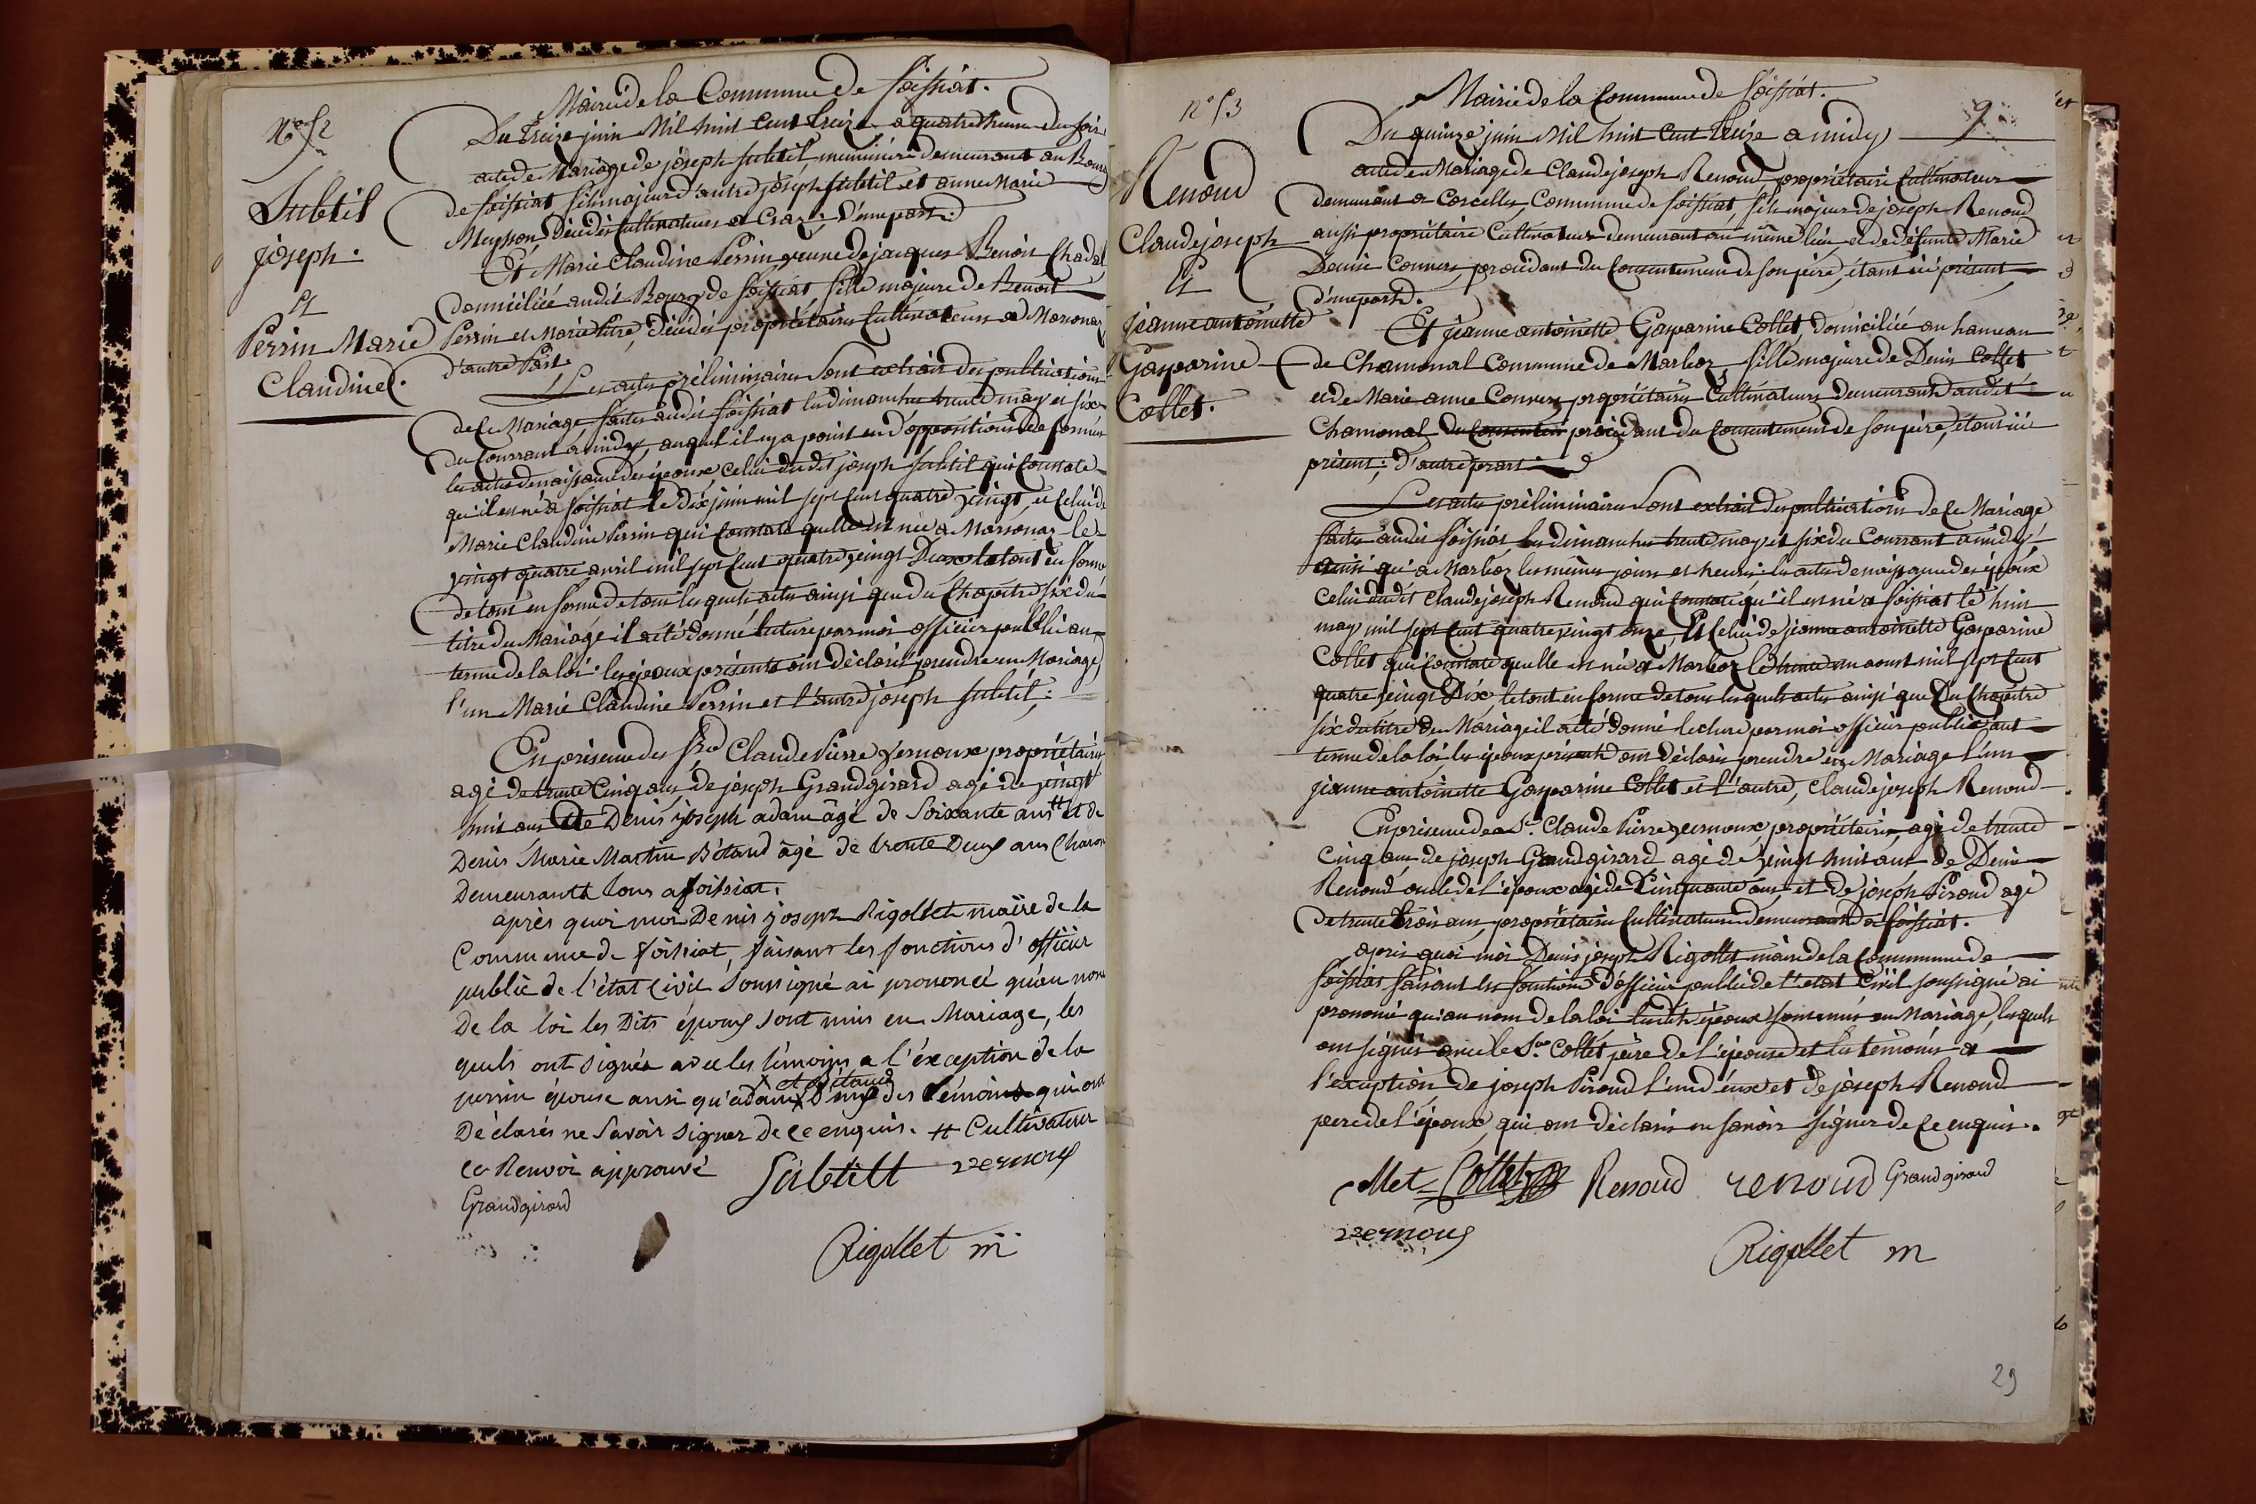 Mairie de la Commune de foissiat.
N° 52
Du treize juin Mil huit Cent treize a quatre heures du soir
acte de Mariage de joseph subtil meunier demeurant au Bourg
Subtil
joseph.
Et
Perrin Marie
Claudine.
de foissiat fils majeur d'autre joseph subtil et anne Marie
Meysson, Décédés Cultivateurs a Craz; D'une part.
Et Marie Claudine Perrin veuve de jacques Benoit Chadal
domiciliée audit Bourg de foissiat fille majeure de Benoit
Perrin et Marie Pitre, décédés propriétaires Cultivateurs a Marsonaz
d'autre Part.
Les actes préliminaires sont extrait des publications
de Ce Mariage faites audit foissiat les dimanches trente may et six
du Courrant a midy, auquel il n'y a point eu d'oppositions de formées
les actes de naissance des époux, Celui dudit joseph subtil qui Constate
qu'il est né a foissiat le dix juin mil sept Cent quatre vingt, et Celui de
Marie Claudine Perrin qui Constate quelle est née a Marsonaz le
vingt quatre avril mil sept Cent quatre vingt Deux le tout en forme
de tout en forme de tous lesquels actes ainsi que du Chapitre six du
titre du Mariage il a été donné lecture par moi officier public au
terme de la loi. les époux présents ont déclaré prendre en Mariage
l'un Marie Claudine Perrin et l'autre joseph subtil;
En présence des Srs Claude Pierre Vernoux propriétaire
agé de trente Cinq ans de joseph Grandgirard agé de vingt
huit ans de Denis joseph adam âgé de Soixante ans # et de
Denis Marie Martin Bétaud âgé de trente Deux ans Charon
Demeurants tous a foissiat.
après quoi moi Denis joseph Rigollet maire de la
Commune de foissiat, faisant les fonctions d'officier
public de l'état civil Soussigné ai prononcé qu'au nom
De la loi les Dits époux sont unis en Mariage, les
quels ont signés avec les témoins a l'éxception de la
x et Bétaud
perrin épouse ansi qu'adam x D'une des témoins qui ont
Déclarés ne Savoir signer de ce enquis. # Cultivateur
ce Renvoi approuvé Subtill vernoux
Grandgirard
Rigollet m
Mairie de la Commune de foissiat.
N° 53
9
Du quinze juin Mil huit Cent treize a midy
Renoud
Claude joseph
Et
jeanne antoinette
Gasparine
Collet.
acte de Mariage de Claude joseph Renoud, propriétaire Cultivateur
demeurant a Corcelles, Commune de foissiat, fils majeur de joseph Renoud
aussi propriétaire Cultivateur demeurant au même lieu et de défunte Marie
Denise Convers, procédant du Consentement de son père, étant ici présent
d'une part.
Et jeanne antoinette Gasparine Collet, domiciliée au hameau
de Chamonal Commune de Marboz, fille majeure de Denis Collet
et de Marie anne Convers propriétaires Cultivateurs Demeurants audit
Chamonal du Consentem procédant du Consentement de son père, étant ici
présent; d'autre part.
Les actes préliminaires sont extrait des publications de Ce Mariage
faites audit foissiat, les dimanches trente may et six du Courrant a midy
ainsi qu'a Marboz les mêmes jours et heures les actes de naissance des époux
Celui dudit Claude joseph Renoud qui Constate qu'il est né a foissiat le huit
may mil sept Cent quatre vingt onze, Et Celui de jeanne antoinette Gasparine
Collet qui Constate quelle est née a Marboz le trente un aoust mil sept Cent
quatre vingt Dix, le tout en forme de tous lesquels actes ainsi que Du Chapitre
six du titre du Mariage il a été donné lecture par moi officier public aut
terme de la loi, les époux présents ont déclarés prendre en Mariage l'un
jeanne antoinette Gasparine Collet et l'autre, Claude joseph Renoud
En présence de Sr. Claude Pierre Vernoux, propriétaire, agé de trente
Cinq ans de joseph Grandgirard agé de vingt huit ans de Denis
Renoud oncle de l'époux agé de Cinquante ans, et de joseph Piroud agé
de trente trois ans, propriétaire Cultivateurs demeurants a foissiat.
après quoi moi Denis joseph Rigollet maire de la Commune de
foissiat faisant les fonctions d'officier public de l'état Civil soussigné ai
prononcé qu'au nom de la loi lesdits époux sont unis en Mariage, lesquels
ont signés avec le Sr. Collet père de l'épouse et les témoins a
l'exception de joseph Piroud l'un d'eux et de joseph Renoud
pere de l'époux, qui ont déclarés ne savoir signer de Ce enquis.
Collet Renoud renoud Grandgirard
vernoux
Rigollet m
29